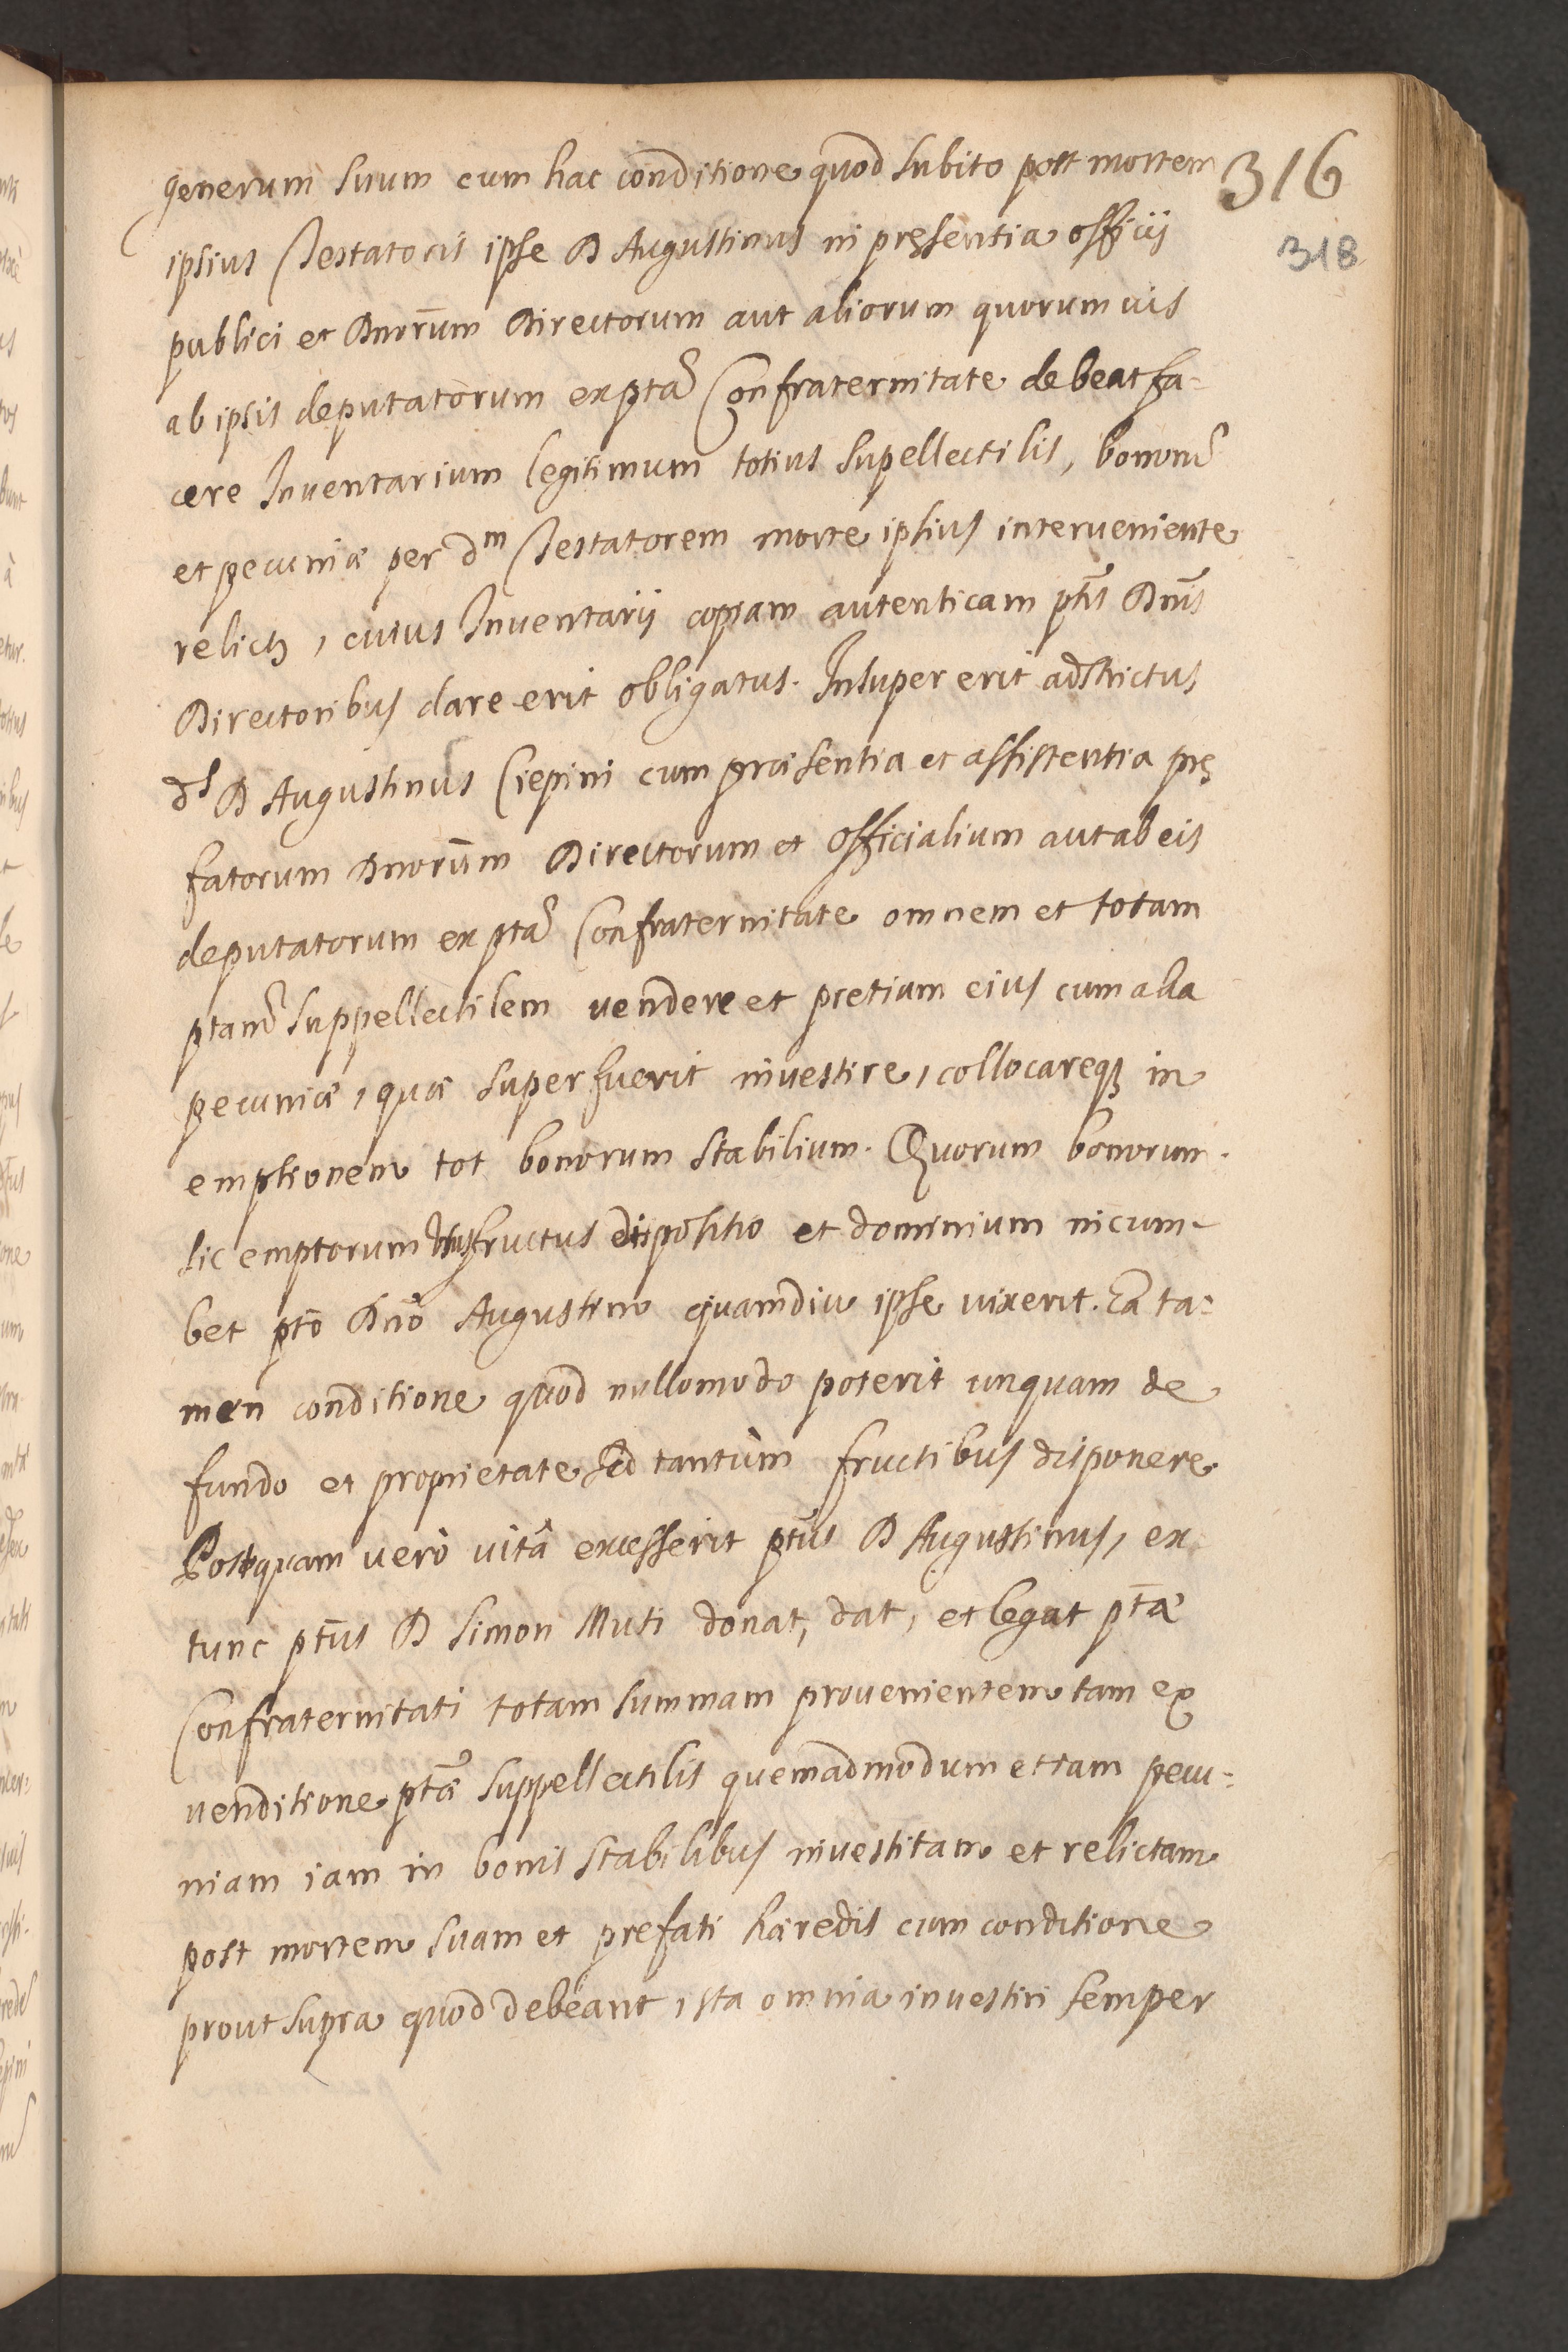 generum suum cum hac conditione quod subito post mortem
316
ipsius Testatoris ipse D Augustinus in pręsentia officii
318
publici et Dnorum Directorum aut aliorum quorumuis
ab ipsis deputatorum ex pta Confraternitate debeat fa-
cere Inuentarium legitimum totius supellectilis, bonorũ
et pecuniæ per dm Testatorem morte ipsius interueniente
relictę, cuius Inuentarij copiam autenticam ptis Dnis
Directoribus dare erit obligatus. Insuper erit adstrictus
ds D Augustinus Ciepini cum præsentia et assistentia prę
fatorum Dnorum Directorum et Officialium aut ab eis
deputatorum ex pta Confraternitate omnem et totam
ptam suppellectilem vendere et pretium eius cum alia
pecuniæ, quæ superfuerit inuestire, collocareq; in
emptionem tot bonorum stabilium. Quorum bonorum
sic emptorum Ususfructus dispositio et dominium incum-
bet pto Dno Augustino quamdiu ipse vixerit. Ea ta-
men conditione quod nullomodo poterit unquam de
fundo et proprietate sed tantùm fructibus disponere
Postquam verò vitâ excesserit ptus D Augustinus, ex
tunc ptus D Simon Muti donat, dat, et legat ptæ
Confraternitati totam summam prouenientem tam ex
venditione ptæ suppellectilis quemadmodum etiam pecu-
niam iam in bonis stabilibus inuestitam et relictam
post mortem suam et prefati hæredis cum conditione
prout supra quod debeant ista omnia inuestiri semper